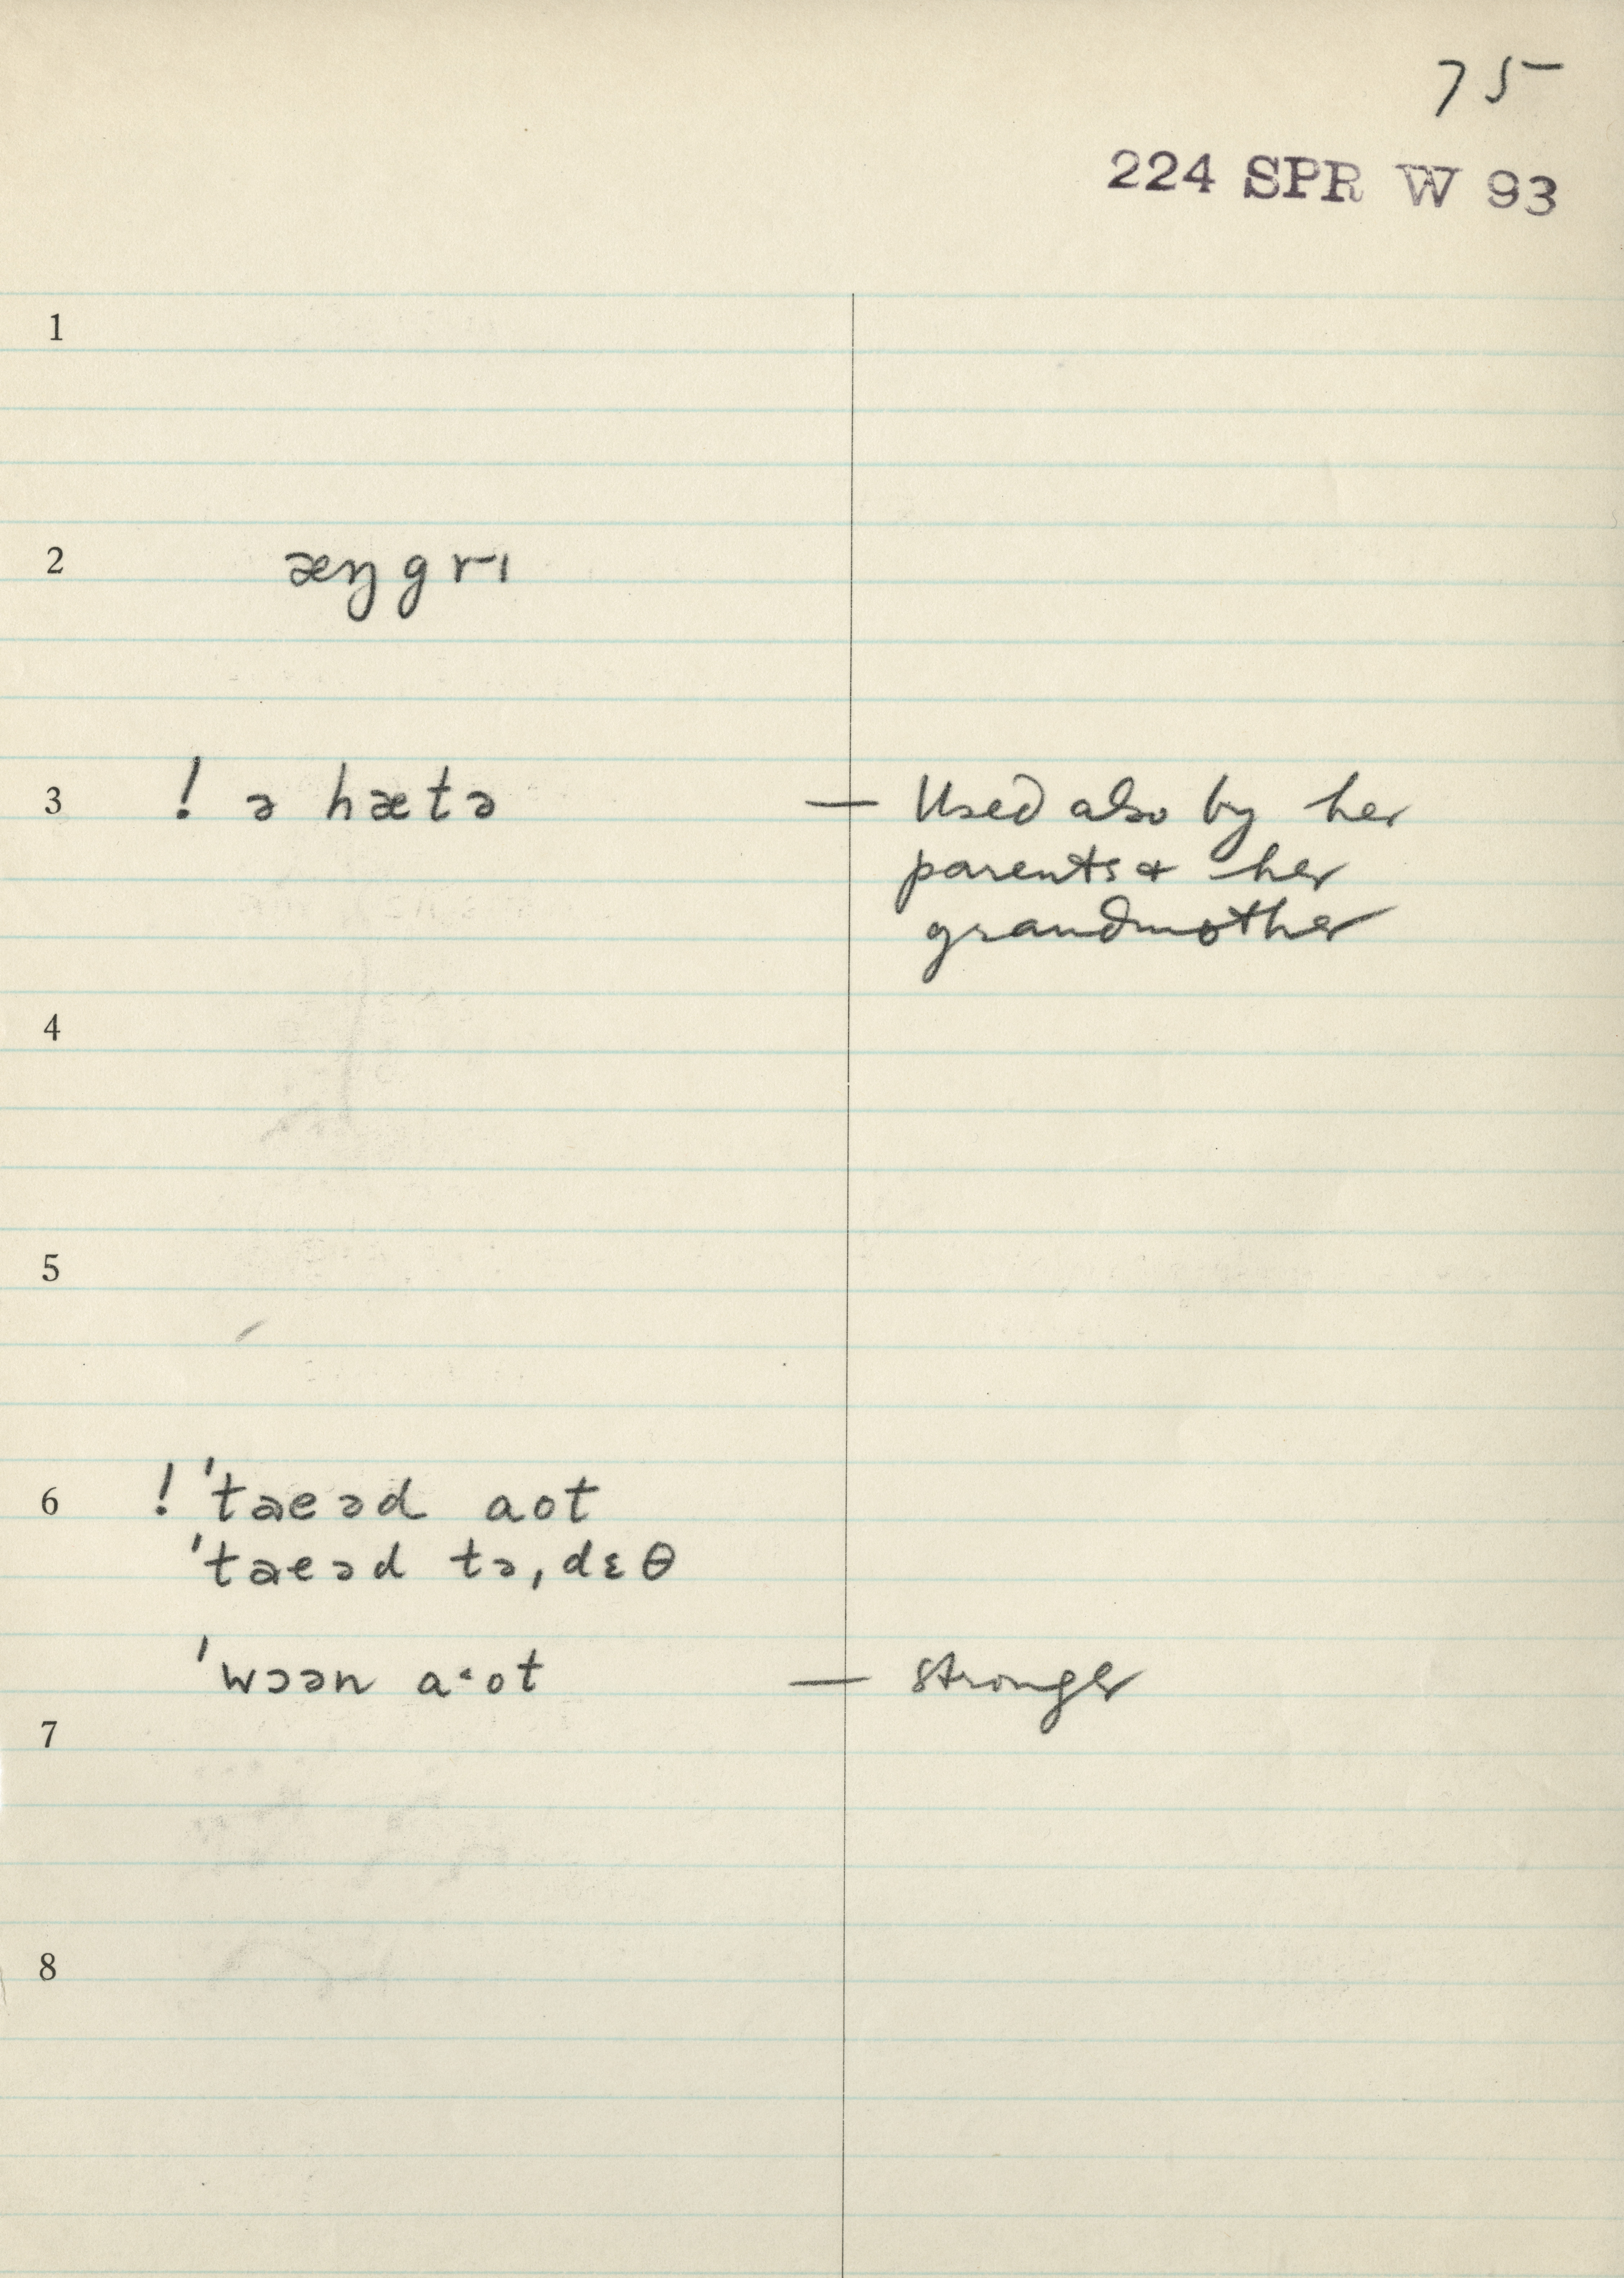 75
224 SPR W 93
1
2 æŋgrɪ
3 ! ə hætə — Used also by her
parents & her
grandmother
4
5
6 ! ˈtaeəd aot
ˈtaeəd tə, dɛθ
ˈwɔən a·ot — stronger
7
8